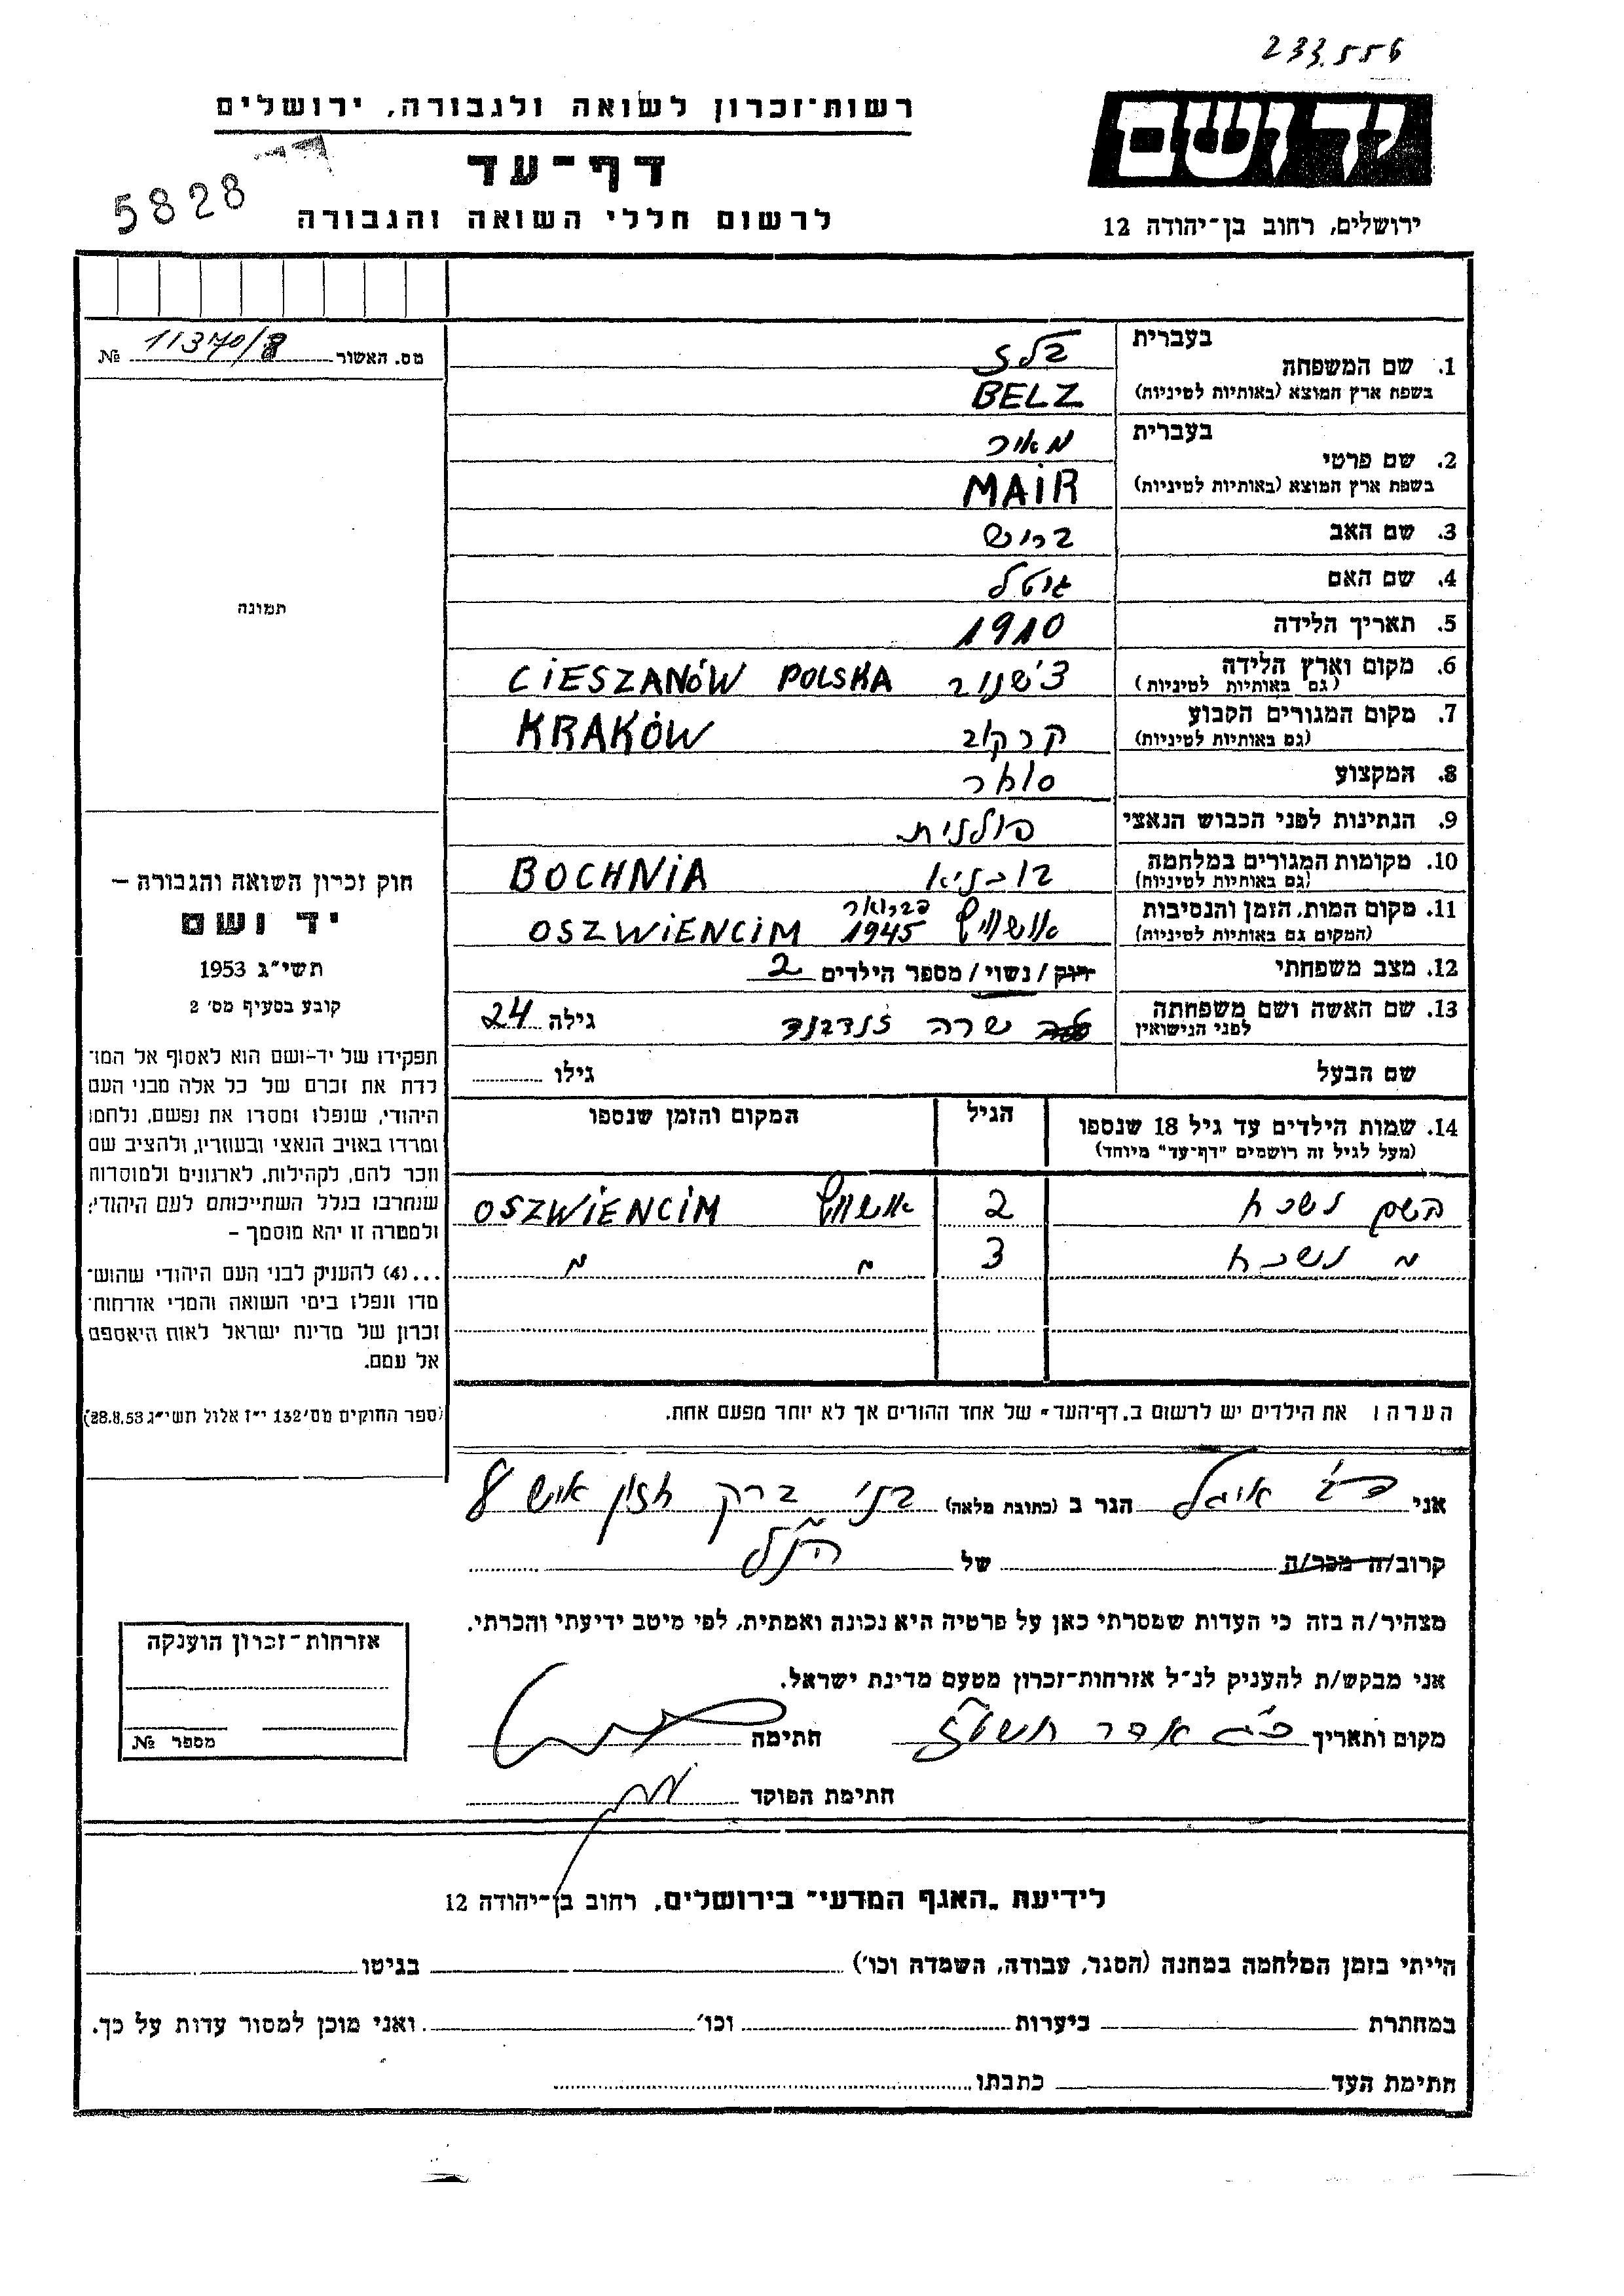 233.556
יד ושם
ירושלים, רחוב בן־יהודה 12
רשות־זכרון לשואה ולגבורה, ירושלים
דף־עד
לרשום חללי השואה והגבורה
5828
מס. האשור 11370/8 №
תמונה
חוק זכרון השואה והגבורה –
יד ושם
תשי״ג 1953
קובע בסעיף מס׳ 2
תפקידו של יד-ושם הוא לאסוף אל המו־
לדת את זכרם של כל אלה מבני העם
היהודי, שנפלו ומסרו את נפשם, נלחמו
ומרדו באויב הנאצי ובעוזריו, ולהציב שם
וזכר להם, לקהילות, לארגונים ולמוסדות
שנחרבו בגלל השתייכותם לעם היהודי;
ולמטרה זו יהא מוסמך –
...(4) להעניק לבני העם היהודי שהוש־
מדו ונפלו בימי השואה והמרי אזרחות־
זכרון של מדינת ישראל לאות היאספם
אל עמם.
(ספר החוקים מס׳ 132 י״ז אלול תשי״ג 28.8.53)
בעברית בלז
1. שם המשפחה
בשפת ארץ המוצא (באותיות לטיניות) BELZ
בעברית מאיר
2. שם פרטי
בשפת ארץ המוצא (באותיות לטיניות) MAIR
3. שם האב בריש
4. שם האם גיטל
5. תאריך הלידה 1910
6. מקום וארץ הלידה צ׳שנוב CIESZANÓW POLSKA
(גם באותיות לטיניות)
7. מקום המגורים הקבוע קרקוב KRAKÓW
(גם באותיות לטיניות)
8. המקצוע סוחר
9. הנתינות לפני הכבוש הנאצי פולנית
10. מקומות המגורים במלחמה בוכניא BOCHNIA
(גם באותיות לטיניות)
11. מקום המות, הזמן והנסיבות אושוויץ פברואר 1945 OSZWIENCIM
(המקום גם באותיות לטיניות)
12. מצב משפחתי רווק / נשוי / מספר הילדים 2
13. שם האשה ושם משפחתה שרה גילה 24
לפני הנישואין
שם הבעל גילו
14. שמות הילדים עד גיל 18 שנספו הגיל המקום והזמן שנספו
(מעל לגיל זה רושמים "דף־עד" מיוחד)
השם נשכח 2 אושוויץ OSZWIENCIM
" נשכח 3 " "
הערה: את הילדים יש לרשום ב„דף־העד" של אחד ההורים אך לא יותר מפעם אחת.
אני הגר ב (כתובת מלאה) בני ברק חזון איש 8
קרוב/ה מכר/ה של הנ"ל
מצהיר/ה בזה כי העדות שמסרתי כאן על פרטיה היא נכונה ואמתית, לפי מיטב ידיעתי והכרתי.
אני מבקש/ת להעניק לנ״ל אזרחות־זכרון מטעם מדינת ישראל.
מקום ותאריך אדר חתימה
חתימת הפוקד
אזרחות־זכרון הוענקה
מספר №
לידיעת „האגף המדעי" בירושלים, רחוב בן־יהודה 12
הייתי בזמן המלחמה במחנה (הסגר, עבודה, השמדה וכו׳) בגיטו
במחתרת ביערות וכו׳ ואני מוכן למסור עדות על כך.
חתימת העד כתבתו